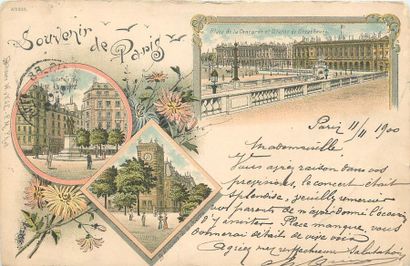 Souvenir de Paris
Place de la Concorde et Statue de Strasbourg
Paris 11/11 1900
Mademoiselle
Vous aviez raison dans vos
prévisions, le concert était
splendide, veuillez remercier
vos parents de m'avoir donné l'occasion
d'y assister. Place manque, vous
donnerai détails de vive voix
Agréez mes respectueuses Salutations